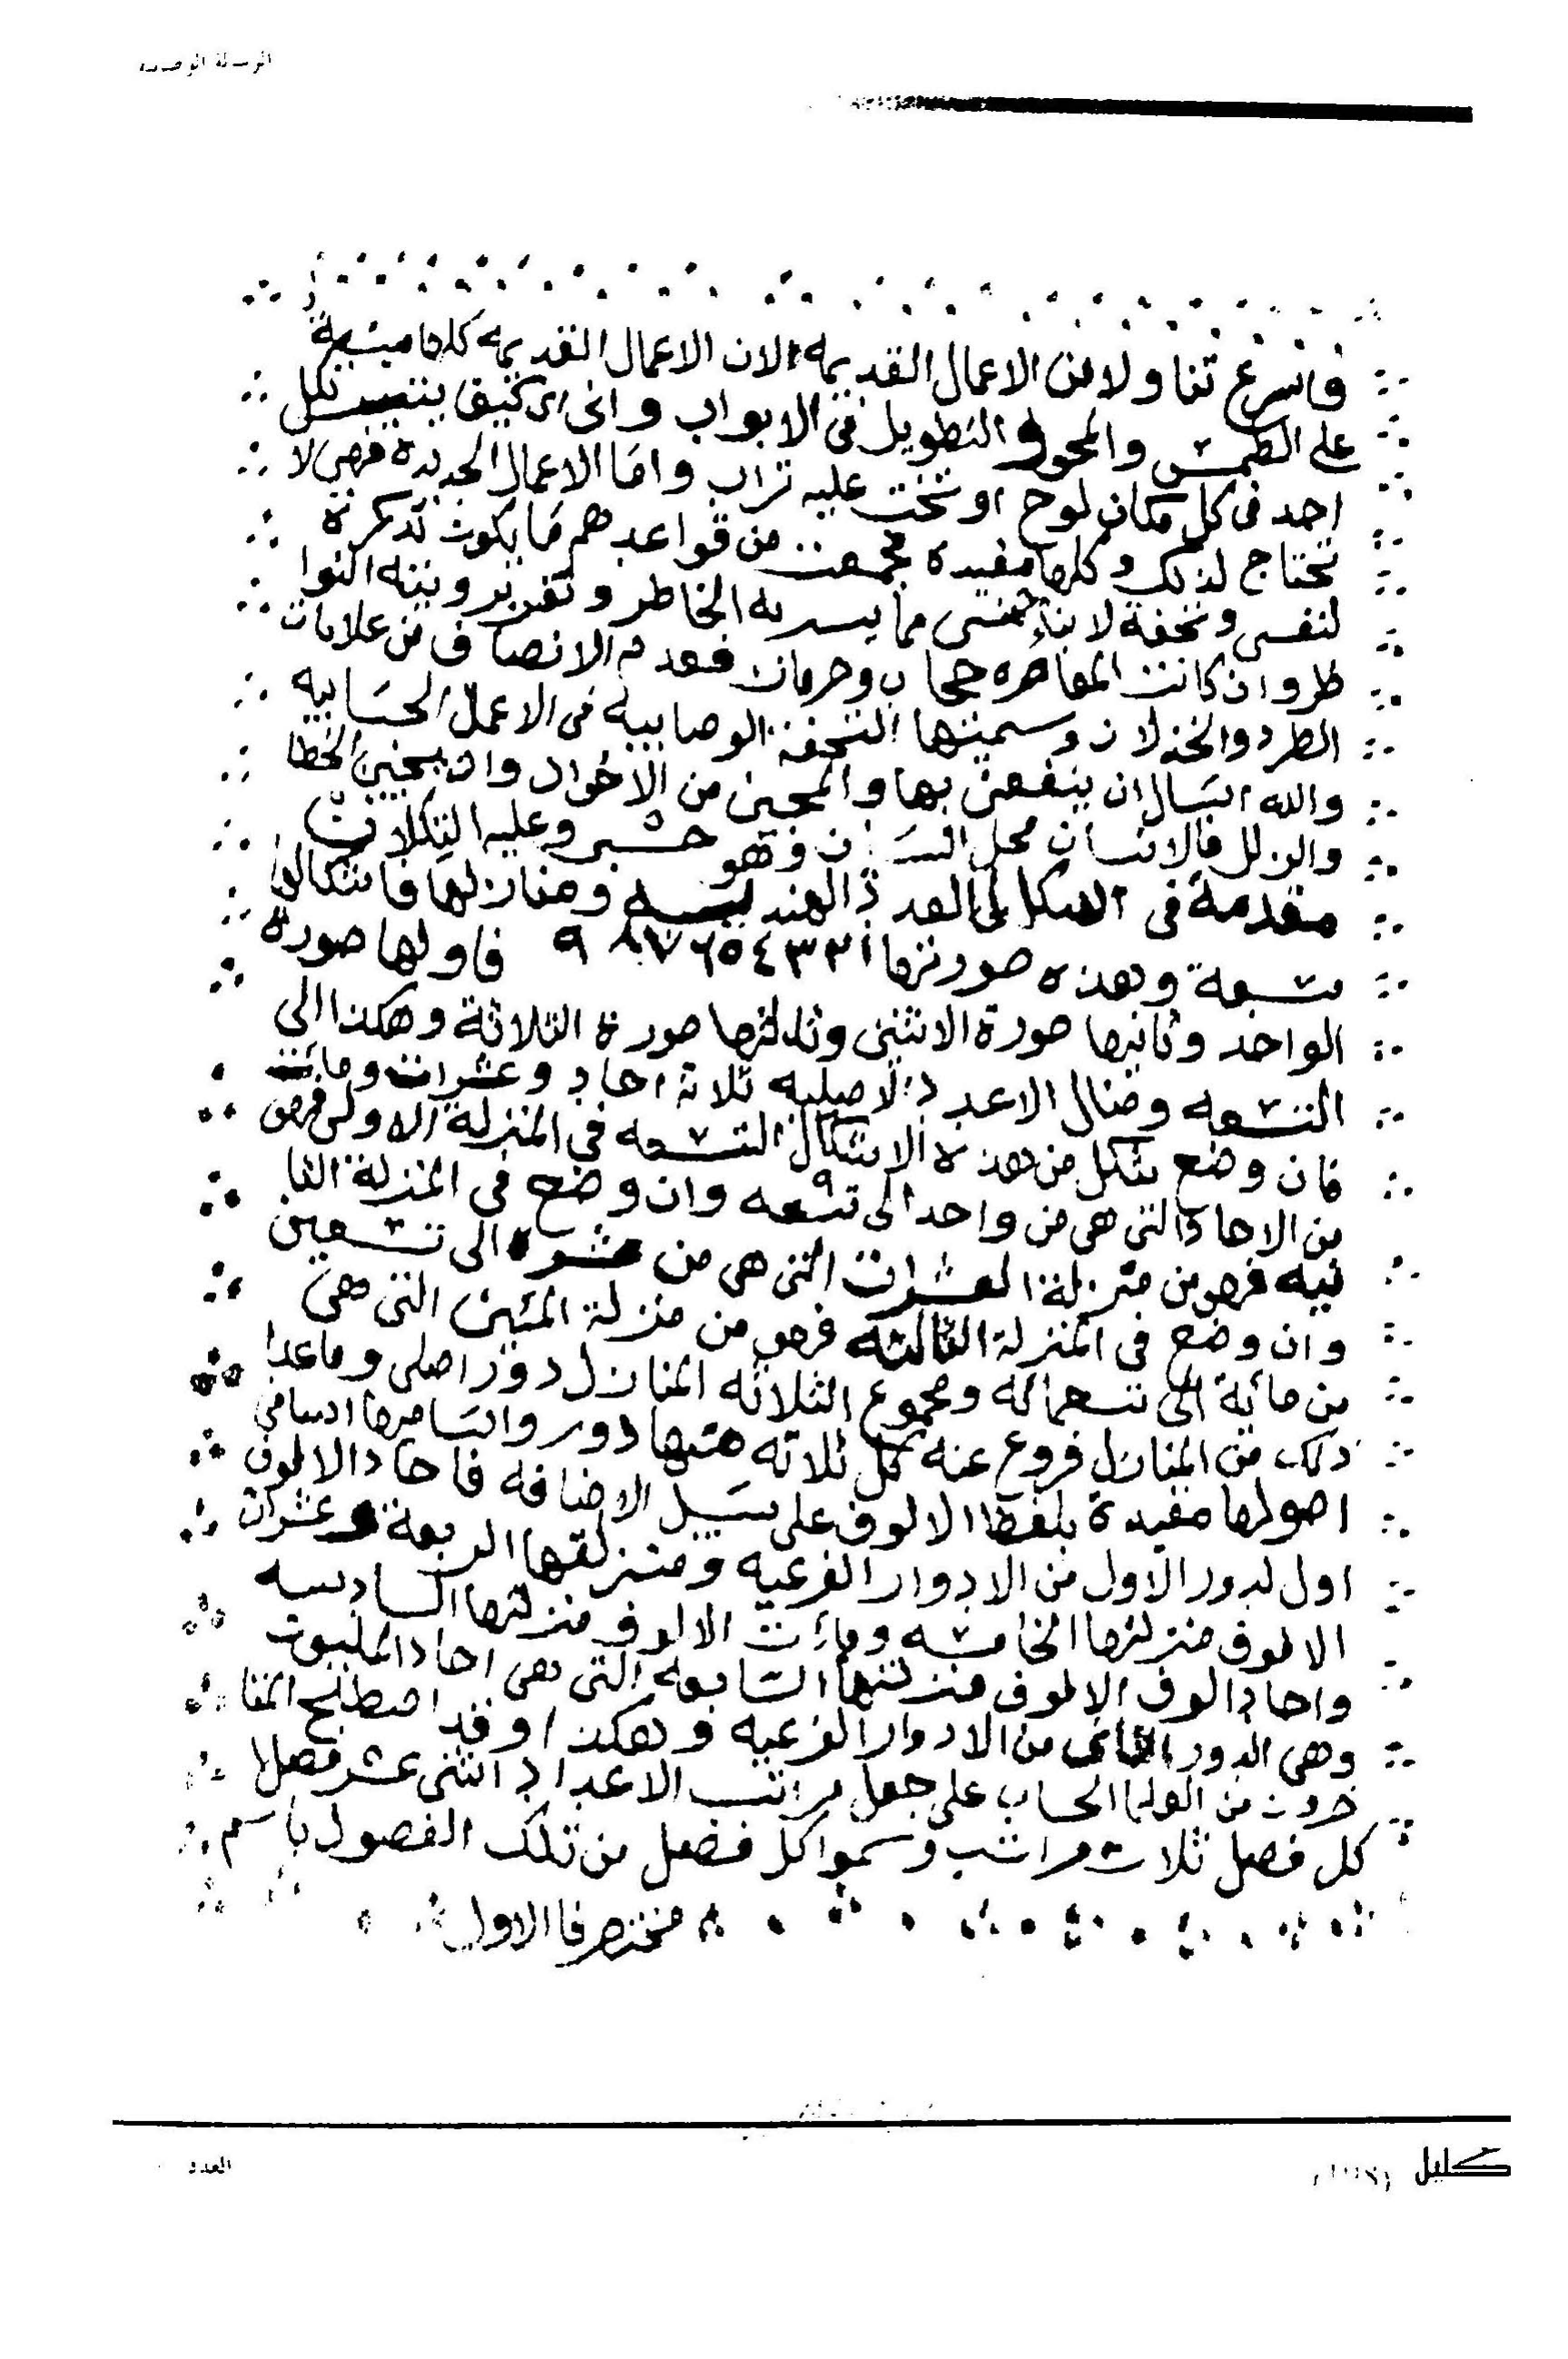 واسرع تناولا من الاعمال القديمه الان الاعمال القديمه كلها مبنية
على الطمس والمحو والتطويل في الابواب وانى كيف يتيسر لكل
احد فى كل مكان لوح او تخت عليه تراب واما الاعمال الجديدة فهى لا
تحتاج لذلك وكلها مفيدة فجمعت من قواعدهم ما يكون تذكرة
لنفسى وتحفة لابناء جنسى مما يسر به الخاطر وتقر به وينه النوا
ظر وان كانت المعاصره حجاب وحرمان فعدم الانصاف من علامات
الطرد والخذلان وسميتها التحفة الوصابيه فى الاعمال الحسابيه
والله اسال ان ينفعنى بها والمحبين من الاخوان وان يجنبنى الخطا
والزلل فالانسان محل النسيان فهو حسبى وعليه التكلان
مقدمة فى اشكال العدد الهندسيه ومنازلها فاشكالها
تسعة وهذه صورتها ١ ٢ ٣ ٤ ٥ ٦ ٧ ٨ ٩ فاولها صورة
الواحد وثانيها صورة الاثنين وثالثها صورة الثلاثة وهكذا الى
التسعه ومنازل الاعداد الاصليه ثلاثة احاد وعشرات ومآت
فان وضع شكل من هذه الاشكال التسعه في المنزلة الاولى فهو
من الاحاد التى هى من واحد الى تسعه وان وضع فى المنزلة الثا
نيه فهو من منزلة العشرات التى هى من عشره الى تسعين
وان وضع فى المنزلة الثالثه فهو من منزلة المئين التى هى
من مائة الى تسعمائه ومجموع الثلاثه المنازل دور اصلى وما عدا
ذلك من المنازل فروع عنه كل ثلاثه منها دور واساميها اسامى
اصولها مقيدة بلفظ الالوف على سبيل الاضافه فاحاد الالوف
اول لدور الاول من الادوار الفرعيه ومنزلتها الربعة وعشرات
الالوف منزلتها الخامسه ومآت الالوف منزلتها السادسه
واحاد الوف الالوف منزلتها السابعه التى هى احاد المليون
وهى الدور الثانى من الادوار الفرعيه وهكذا وقد اصطلح المتا
خرون من العلما الحساب على جعل مراتب الاعداد اثنى عشر فصلا
كل فصل ثلاث مراتب وسموا كل فصل من تلك الفصول باسم
مختص فالاول
كليل
العدد